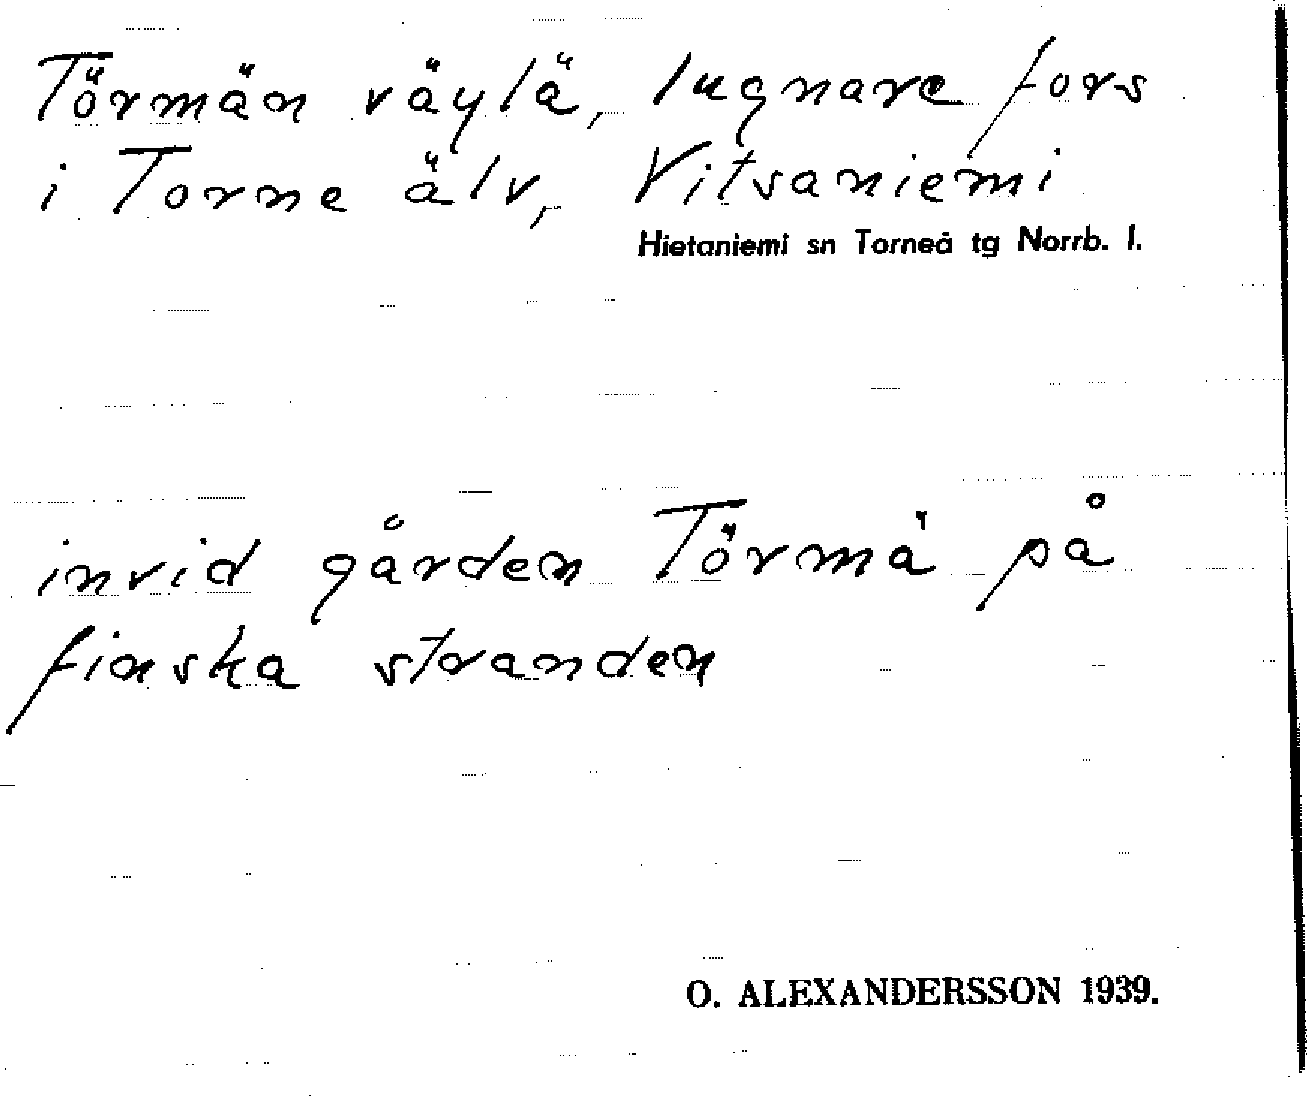 Törmän väylä, lugnare fors
i Torne älv, Vitsaniemi
Hietaniemi sn Torneå tg Norrb. l.
invid gården Törmä på
finska stranden
O. ALEXANDERSSON 1939.